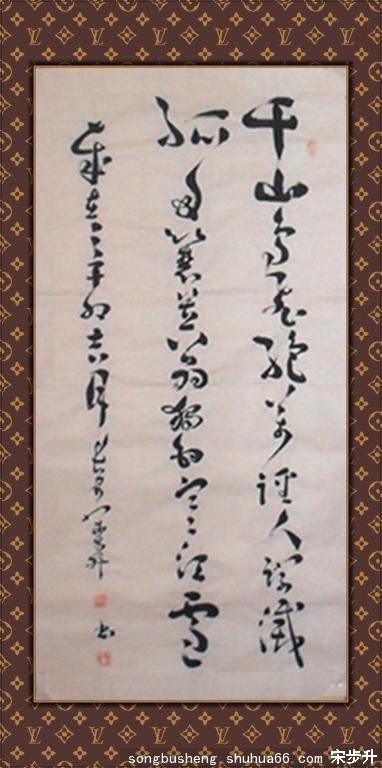 千山鸟飞绝万径人踪灭
孤舟蓑笠翁独钓寒江雪
岁在辛卯 月 步升 书
songbusheng.shuhua66.com 宋步升